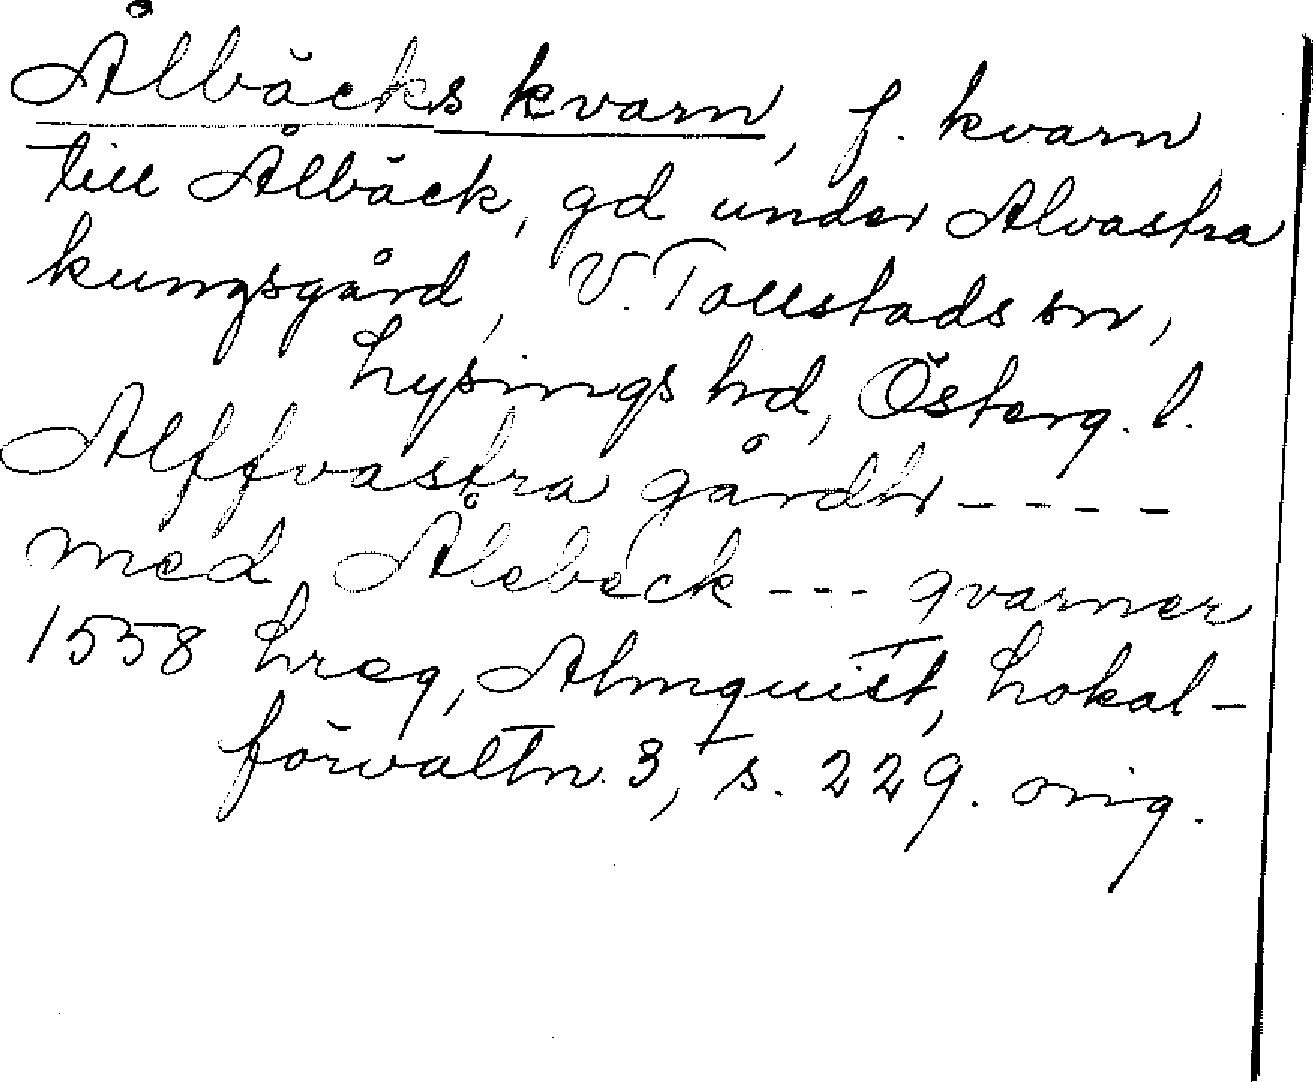 Ålbäcks kvarn, f. kvarn
till Ålbäck, gd under Alvastra
kungsgård, V. Tollstads sn,
Lysings hd, Österg. l.
Alffvastra gårdh - - - -
med Ålebeck - - - qvarner
1558 Lreg, Almquist, Lokal-
förvaltn. 3, s. 229. orig.